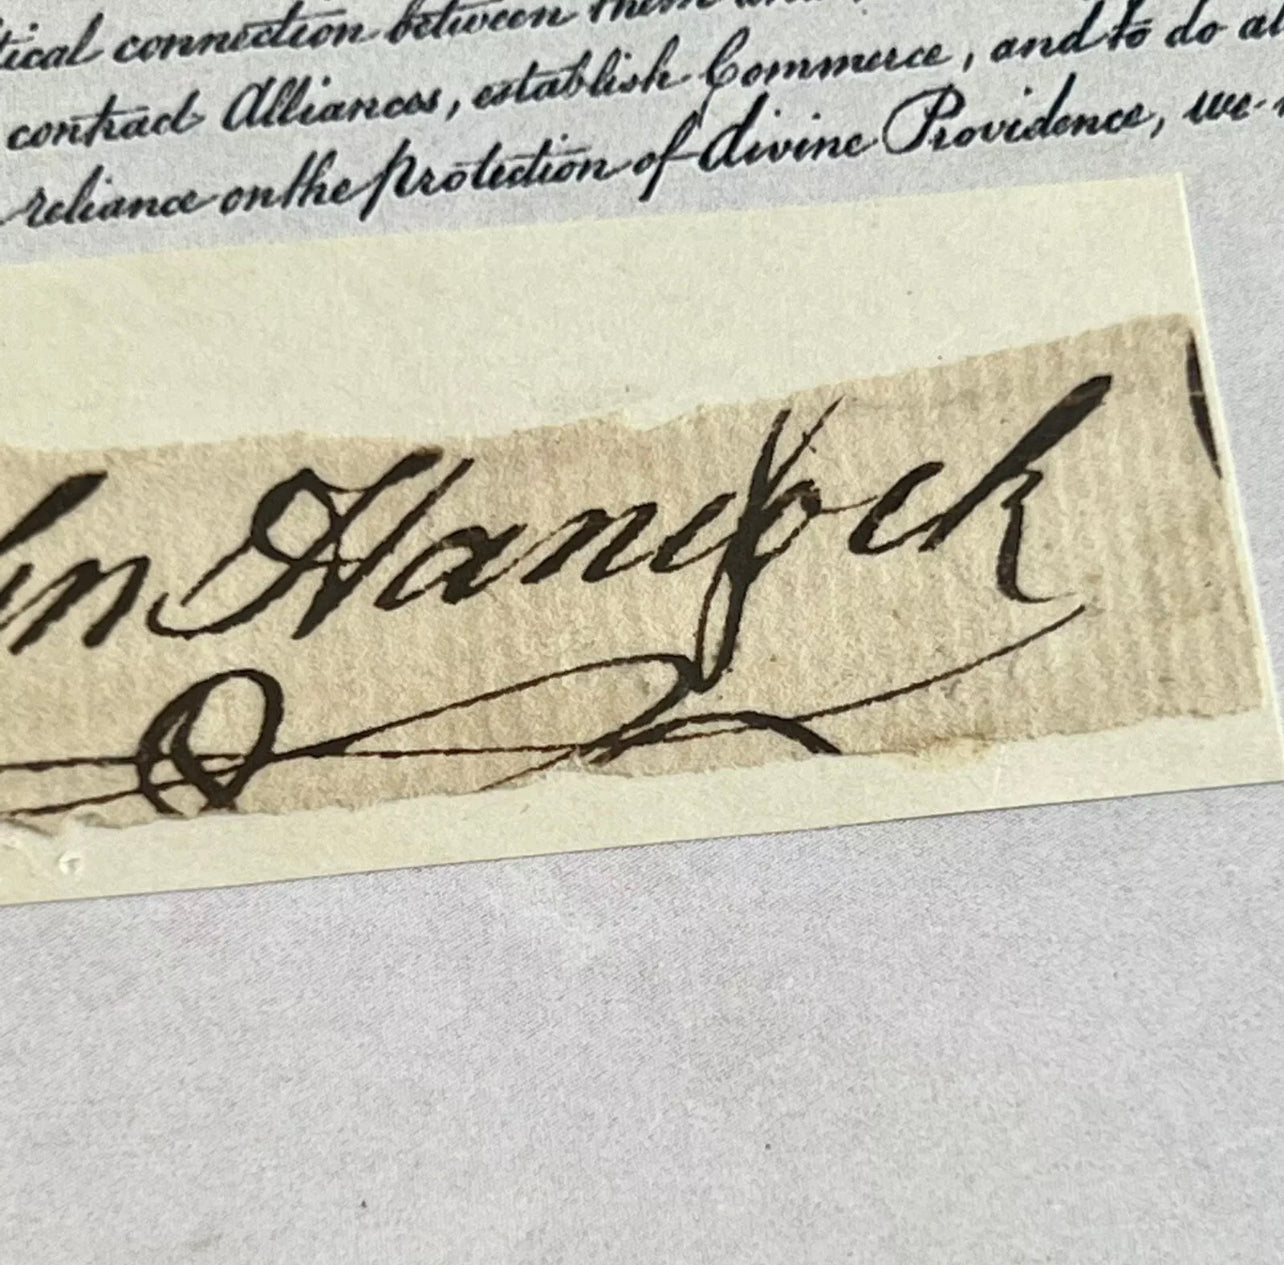 tical connection between them
contract Alliances, establish Commerce, and to do al
reliance on the protection of divine Providence, we
hn Hancock